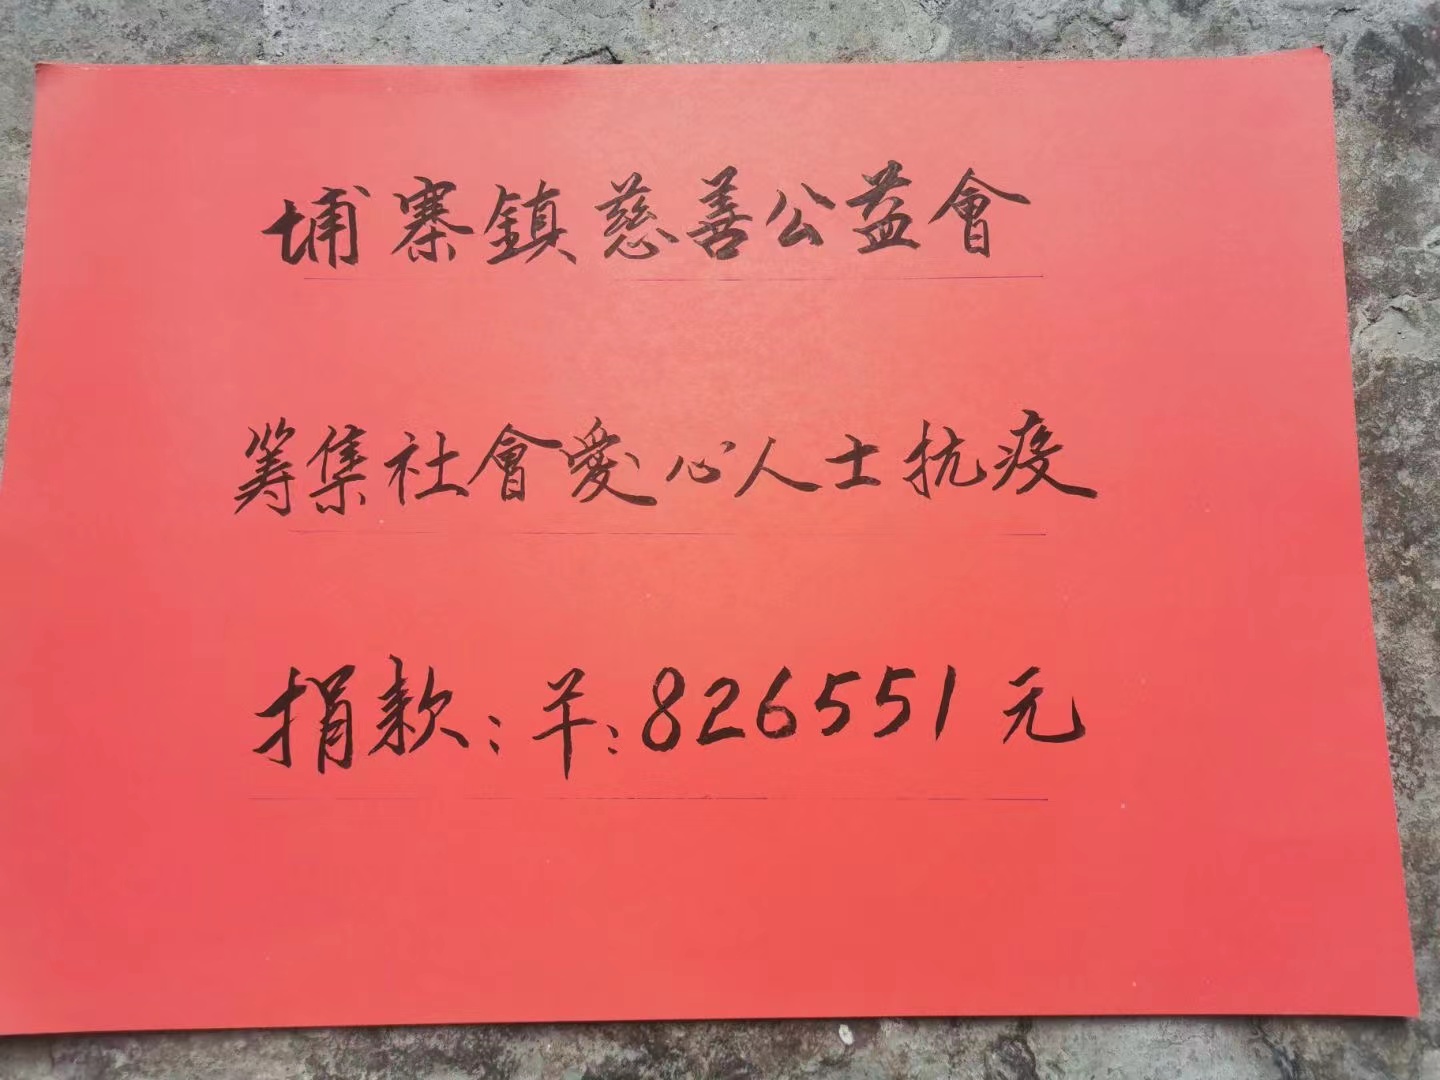 埔寨鎮慈善公益會
筹集社會愛心人士抗疫
捐款:羊:826551元